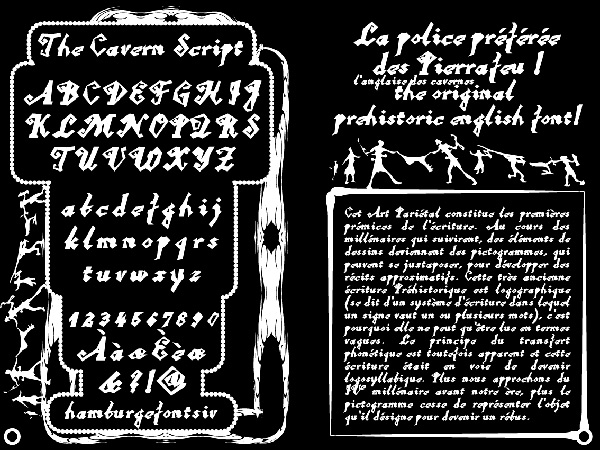 The Cavern Script
ABCDEFGHIJ
KLMNOPQRS
TUVWXYZ
abcdefghij
klmnopqrs
tuvwxyz
1234567890
ÀàæÈèœ
&?!@
hamburgefontsiv
La police préférée
des Pierrafeu !
l'anglaise des cavernes
the original
prehistoric english font!
Cet Art Pariétal constitue les premières
prémices de l'écriture. Au cours des
millénaires qui suivirent, des éléments de
dessins deviennent des pictogrammes, qui
peuvent se juxtaposer, pour développer des
récits approximatifs. Cette très ancienne
écriture Préhistorique est logographique
(se dit d'un système d'écriture dans lequel
un signe vaut un ou plusieurs mots), c'est
pourquoi elle ne peut qu'être lue en termes
vagues. Le principe du transfert
phonétique est toutefois apparent et cette
écriture était en voie de devenir
logosyllabique. Plus nous approchons du
millénaire avant notre ère, plus le
pictogramme cesse de représenter l'objet
qu'il désigne pour devenir un rébus.